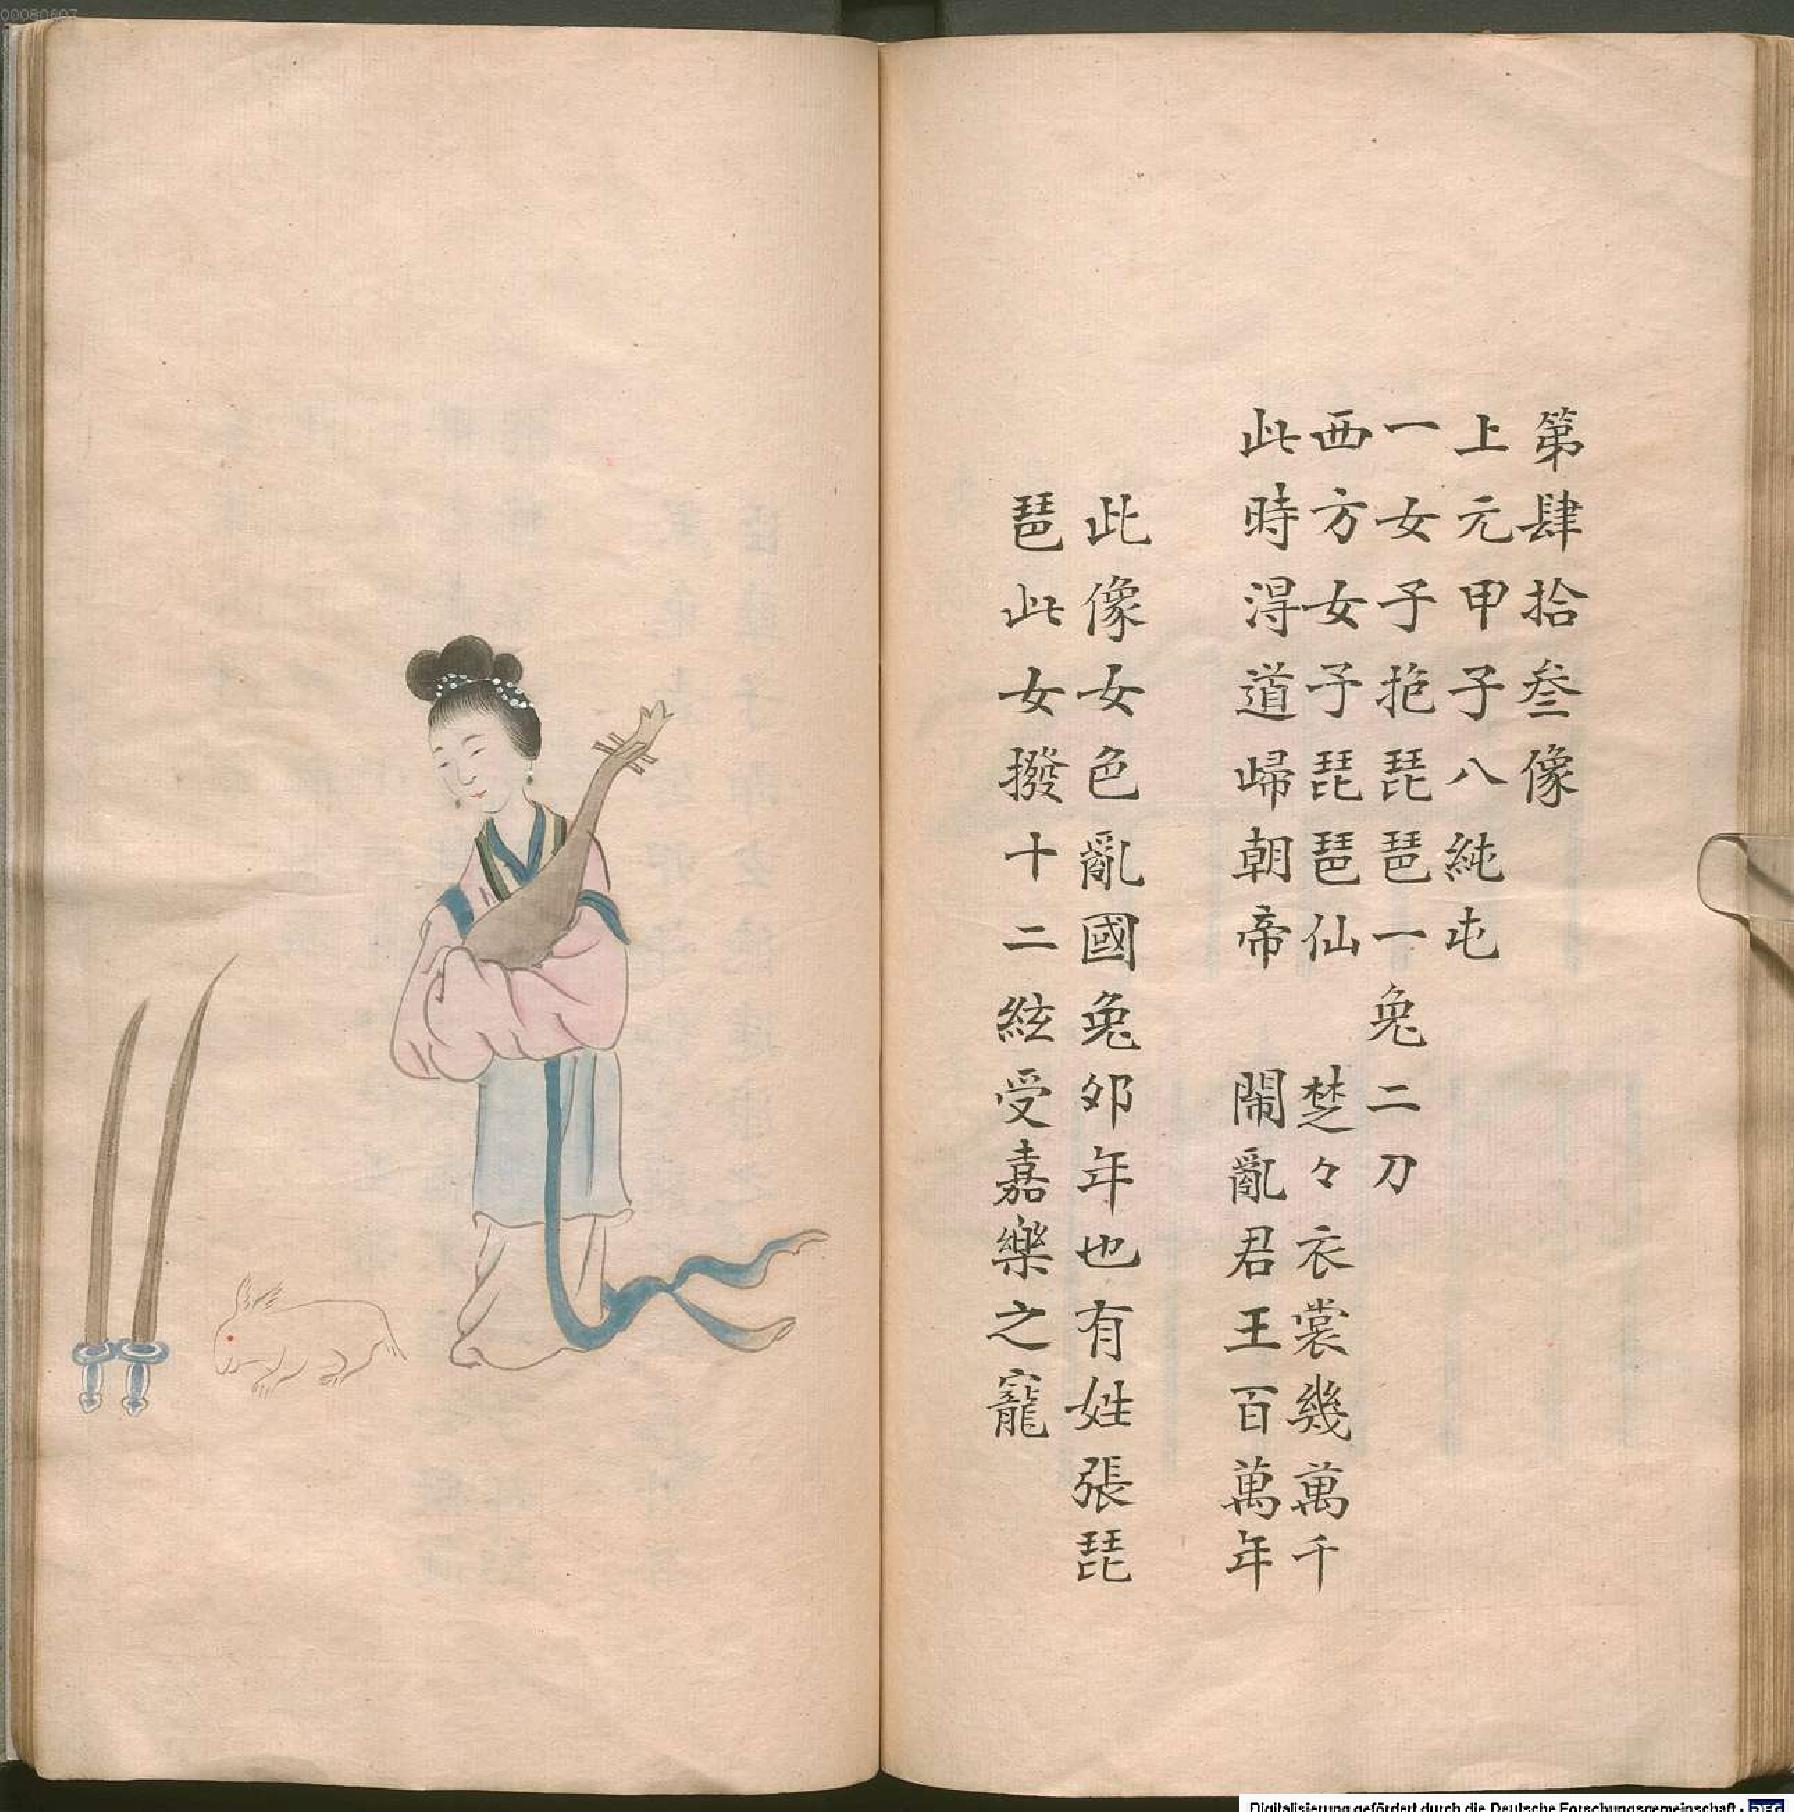 第肆拾叁像
上元甲子八純屯
一女子抱琵琶一兔二刀
西方女子琵琶仙　楚々衣裳幾萬千
此時淂道歸朝帝　鬧亂君王百萬年
此像女色亂國兔卯年也有姓張琵
琶此女撥十二絃受嘉樂之寵
00080607
Digitalisierung gefördert durch die Deutsche Forschungsgemeinschaft - DFG